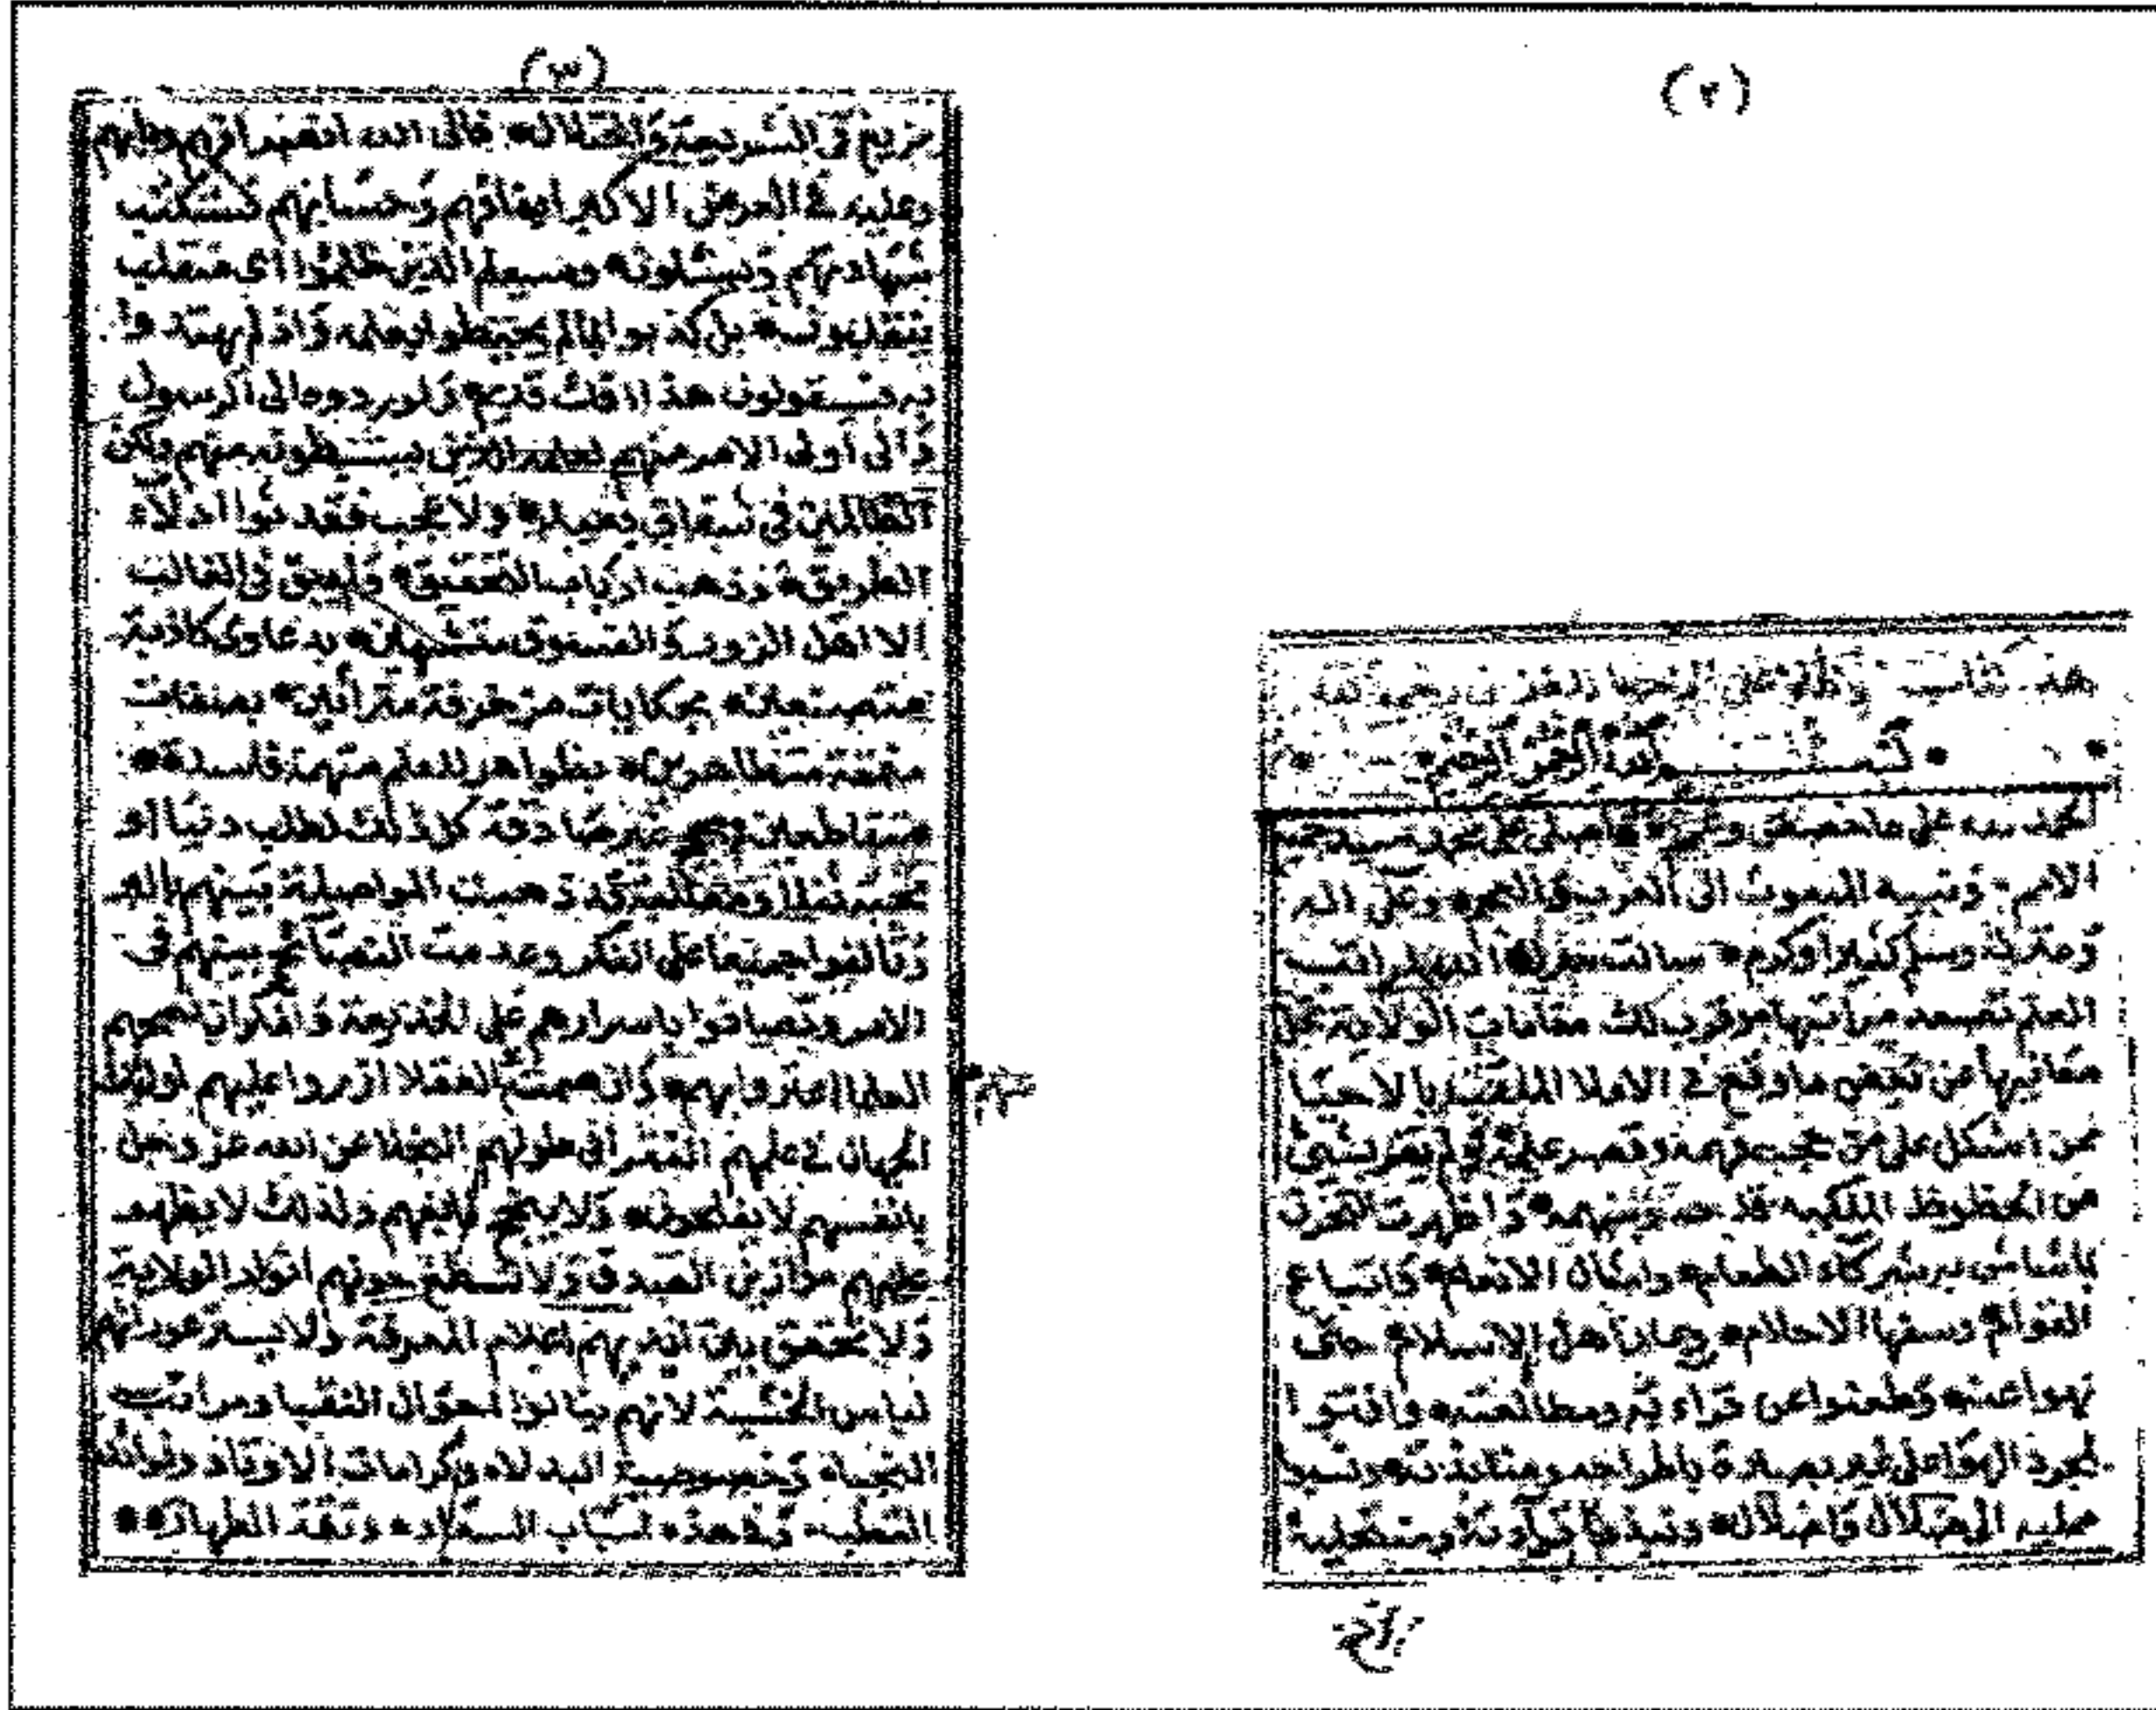 (٢)
هذا كتاب
بسم الله الرحمن الرحيم
الحمد لله على ما خصص وعمم وصلى على محمد سيد جميع
الامم ونبيه المبعوث الى العرب والعجم وعلى اله
وعترته وسلم كثيرا وكرم سالت يسرك الله لمراتب
العلم تصعد مراتبها وقرب لك مقامات الولاية تحل
معاليها عن بعض ما وقع في الاملا الملقب بالاحيا
مما اشكل على من حجب فهمه وقصر علمه ولم يفز بشئ
من الحظوظ الملكيه قدحه وسهمه واظهرت التحزن
لما شاش به شركاء الطعام وامثال الانعام واتباع
العوام وسفها الاحلام وعار اهل الاسلام حتى
نهوا عنه وطعنوا عن قراءته ومطالعته وافتوا
بمجرد الهوا على غير بصيرة باطراحه ومنابذته ونسبوا
ممليه الى ضلال واضلال ونبذوا قراءه ومنتحليه
بزيغ
(٣)
بزيغ في الشريعة واختلال فالى الله انصرافهم ومابهم
وعليه في العرض الاكبر ايقافهم وحسابهم فستكتب
شهادتهم ويسئلون وسيعلم الذين ظلموا اى منقلب
ينقلبون بل كذبوا بما لم يحيطوا بعلمه واذ لم يهتدوا
به فسيقولون هذا افك قديم ولو ردوه الى الرسول
والى اولى الامر منهم لعلمه الذين يستنبطونه منهم ولكن
الظالمين في شقاق بعيد ولا عجب فقد ثوا ادلاء
الطريق وذهب ارباب التحقيق ولم يبق في الغالب
الا اهل الزور والفسوق متشبثين بدعاوى كاذبة
متصنعين بحكايات مزخرفة متزائين بصفات
منمقة متظاهرين بظواهر للعلم متهمة فاسدة
متقاطعين بحجج غير صادقة كل ذلك لطلب دنيا او
محبة ثنا او مغالبة قد ذهبت المواصلة بينهم بالبر
وتالفوا جميعا على النكر وعدمت النصائح بينهم في
الامر وتصافوا باسرارهم على الخديعة والمكر ان نصحوهم
العلما اعتروا بهم وان صمت العقلا ازروا عليهم اولئك
الجهال في علمهم الفقرا في طولهم البخلا عن الله عز وجل
بانفسهم لا يفلحون ولا ينجح تابعهم ولذلك لا يظهر
عليهم مواريث الصدق ولا تسطع حولهم انوار الولاية
ولا تخفق بين ايديهم اعلام المعرفة ولا يستر عوراتهم
لباس الخشية لانهم لم ينالوا احوال النقبا ومراتب
النجباء وخصوصية البدلاء وكرامات الاوتاد وفوائد
القطب وفي هذه اسباب السعادة وتتمة الطهارة